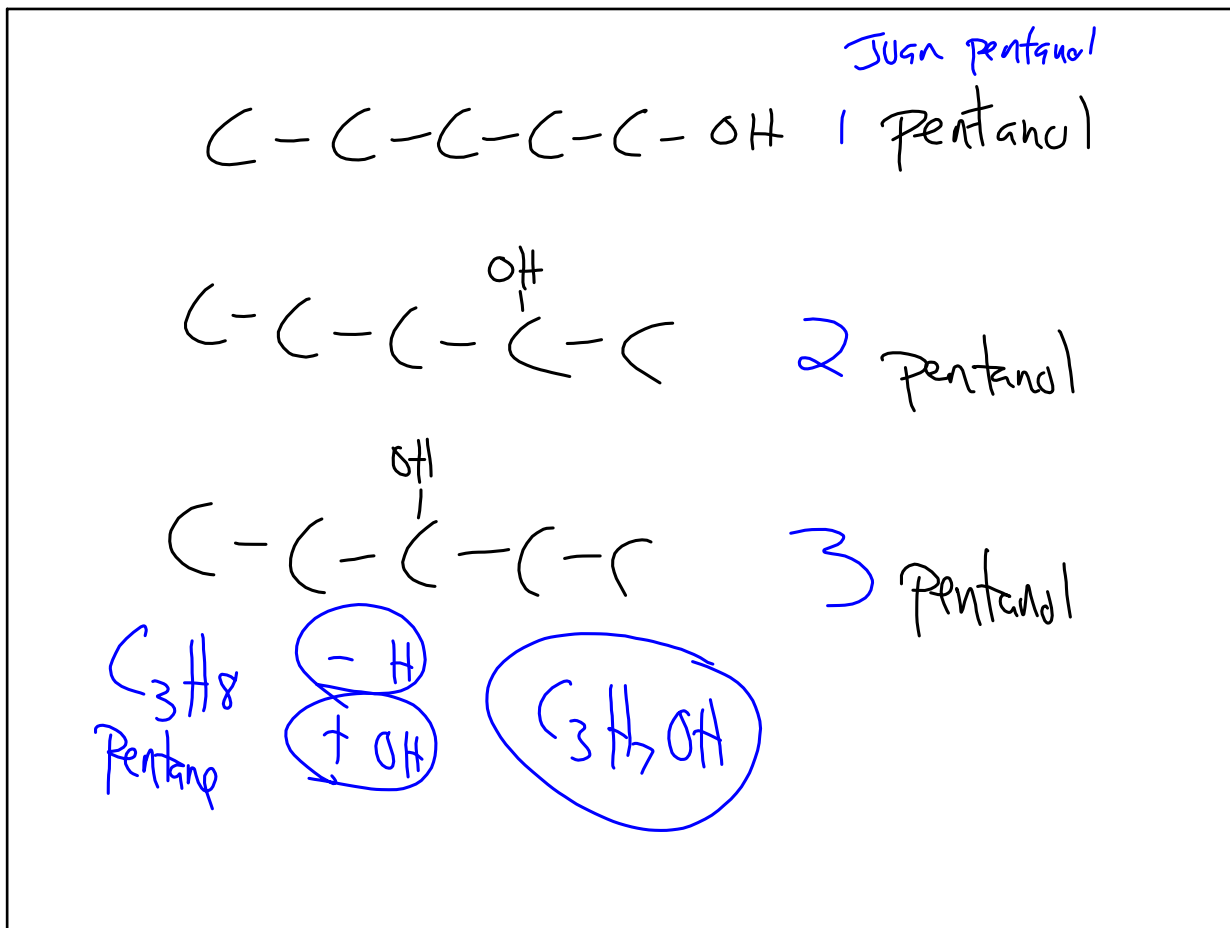 Juan pentanol
C - C - C - C - C - OH 1 pentanol
OH
C - C - C - C - C 2 pentanol
OH
C - C - C - C - C 3 pentanol
C3H8 - H
Pentane + OH C3H7OH